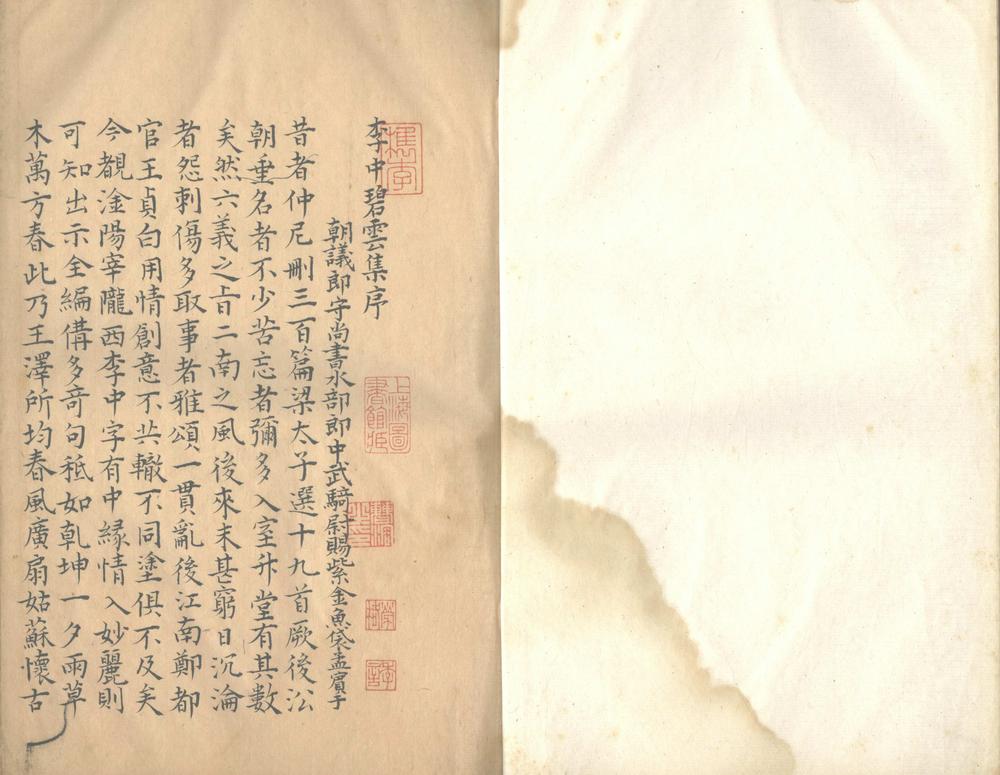 李中碧雲集序
朝議郎守尚書水部郎中武騎尉賜紫金魚袋孟賓于
昔者仲尼刪三百篇梁太子選十九首厥後㳂
朝垂名者不少苦忘者彌多入室升堂有其數
矣然六義之旨二南之風後來未甚窮日沉淪
者怨刺傷多取事者雅頌一貫亂後江南鄭都
官王貞白用情創意不共轍不同塗俱不及矣
今覩淦陽宰隴西李中字有中緣情入妙麗則
可知出示全編備多竒句秪如乾坤一夕雨草
木萬方春此乃王澤所均春風廣扇姑蘇懷古
上海圖書館藏